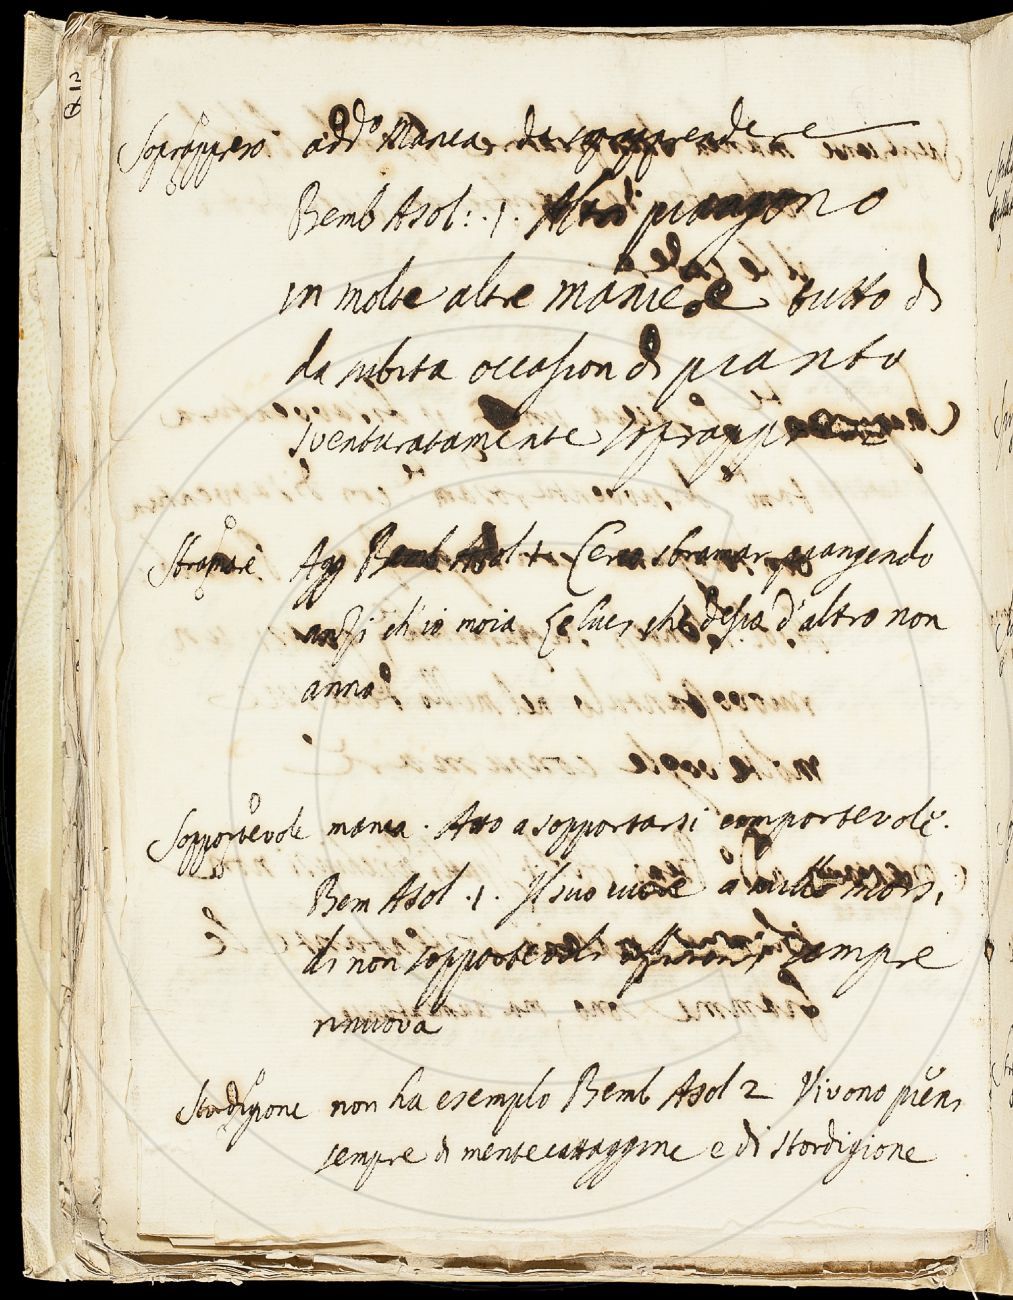 Soprappreso add. Manca, da soprapprendere
Bemb Asol: .1. Altri piangono
in molte altre maniere tutto dì
da subita occasion di pianto
sventuratamente soprappresi
Stramare Agg Bemb Asol 1. stramar piangendo
anzi ch'io moia che desia d'altro non
anno
Sopportevole manca. Atto a sopportarsi comportevole.
Bem Asol .1. Il suo cuore a mille morsi
di non sopportevoli sempre
rinnuova
Stordigione non ha esemplo Bemb Asol 2 Vivono pieni
sempre di mentecattaggine e di stordigione